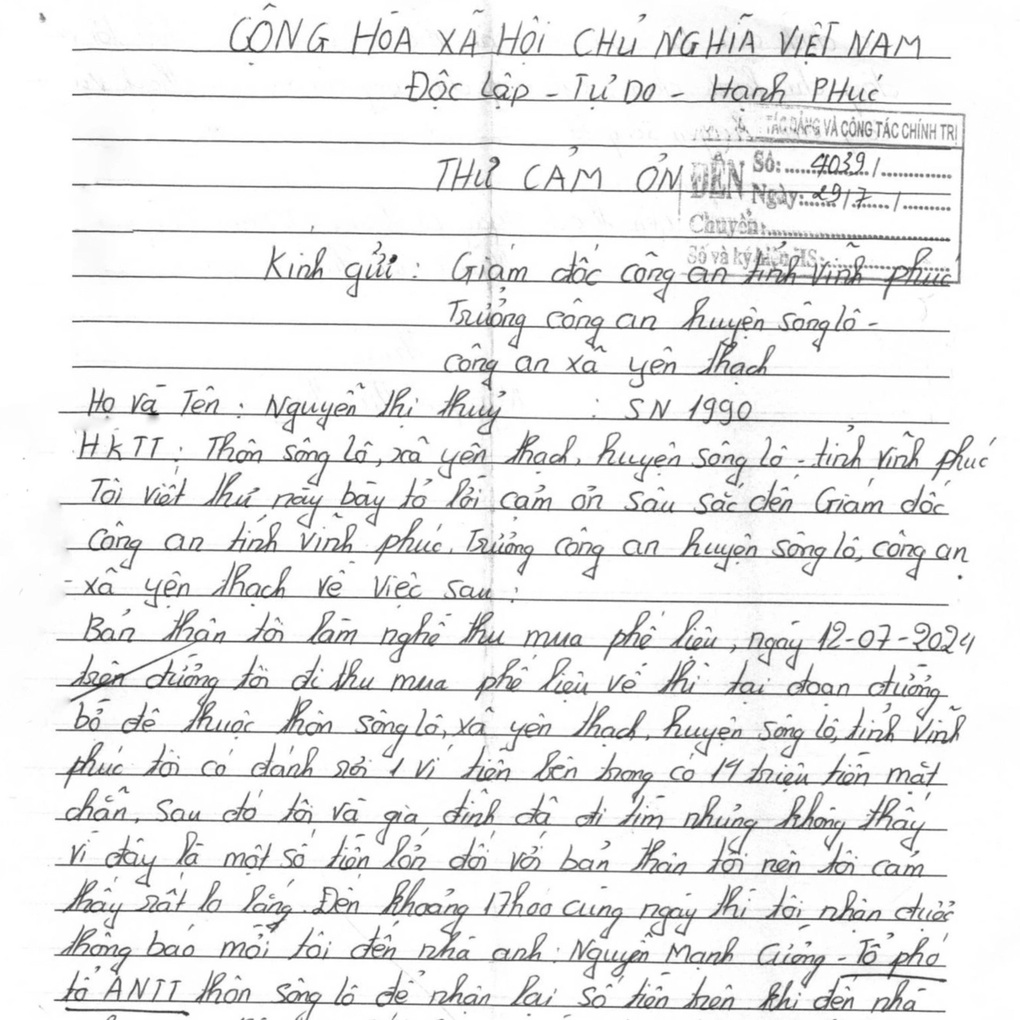 CỘNG HÒA XÃ HỘI CHỦ NGHĨA VIỆT NAM
Độc Lập - Tự Do - Hạnh Phúc
TÁC ĐẢNG VÀ CÔNG TÁC CHÍNH TRỊ
THƯ CẢM ƠN
ĐẾN
Số: 4039/
Ngày: 29/7/
Chuyển:
Số và ký hiệu HS:
Kính gửi: Giám đốc công an tỉnh Vĩnh phúc
Trưởng công an huyện sông lô -
Công an xã yên thạch
Họ và Tên: Nguyễn thị thuỷ : SN 1990
HKTT: Thôn sông lô, xã yên thạch, huyện sông lô - tỉnh vĩnh phúc
Tôi viết thư này bày tỏ lời cảm ơn sâu sắc đến Giám đốc
công an tỉnh vĩnh phúc, Trưởng công an huyện sông lô, công an
- xã yên thạch về việc sau:
Bản thân tôi làm nghề thu mua phế liệu, ngày 12-07-2024
trên đường tôi đi thu mua phế liệu về thì tại đoạn đường
bờ đê thuộc thôn sông lô, xã yên thạch, huyện sông lô, tỉnh vĩnh
phúc tôi có đánh rơi 1 ví tiền bên trong có 14 triệu tiền mặt
chẵn, sau đó tôi và gia đình đã đi tìm nhưng không thấy
vì đây là một số tiền lớn đối với bản thân tôi nên tôi cảm
thấy rất lo lắng. Đến khoảng 17h00 cùng ngày thì tôi nhận được
thông báo mời tôi đến nhà anh: Nguyễn Mạnh Cường - Tổ phó
tổ ANTT thôn sông lô để nhận lại số tiền trên khi đến nhà